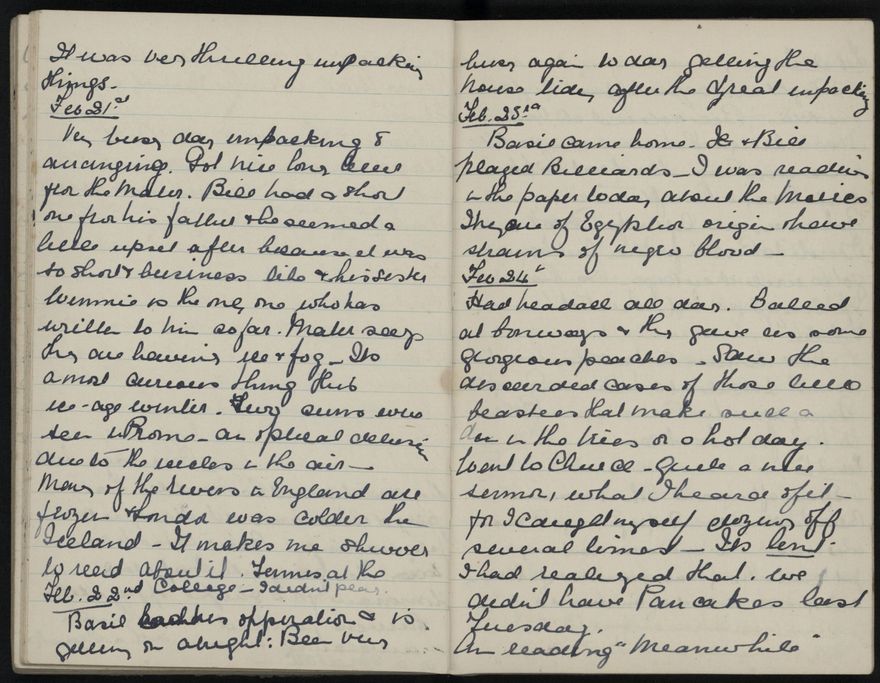 It was very thrilling unpacking
things.
Feb 21st
Very busy day unpacking &
arranging. Got nice long letter
from the Mater. Bill had a short
one from his father & he seemed a
little upset after because it was
so short & business like & his sister
Winnie is the only one who has
written to him so far. Mater says
they are having ice & fog - Its
a most curious thing this
ice-age winter. Two suns were
seen in Rome - an optical delusion
due to the icicles in the air -
Many of the rivers in England are
frozen & London was colder than
Iceland - It makes me shiver
to read about it. Tennis at the
College - I didn't play.
Feb. 22nd
Basil had his opperation & is
getting on alright: Been very
busy again to day getting the
house tidy after the great unpacking
Feb. 23rd
Basil came home. He & Bill
played Billiards - I was reading
in the paper today about the Maories
They are of Egyptian origin & have
strains of negro blood -
Feb 24th
Had headache all day. Called
at & they gave us some
gorgeous peaches. Saw the
discarded cases of those little
beasties that make such a
din in the trees on a hot day.
Went to Church - Quite a nice
sermon, what I heard of it -
for I caught myself dozing off
several times - Its Lent.
I had realized that. We
didn't have Pancakes last
Tuesday.
Am reading "Meanwhile"